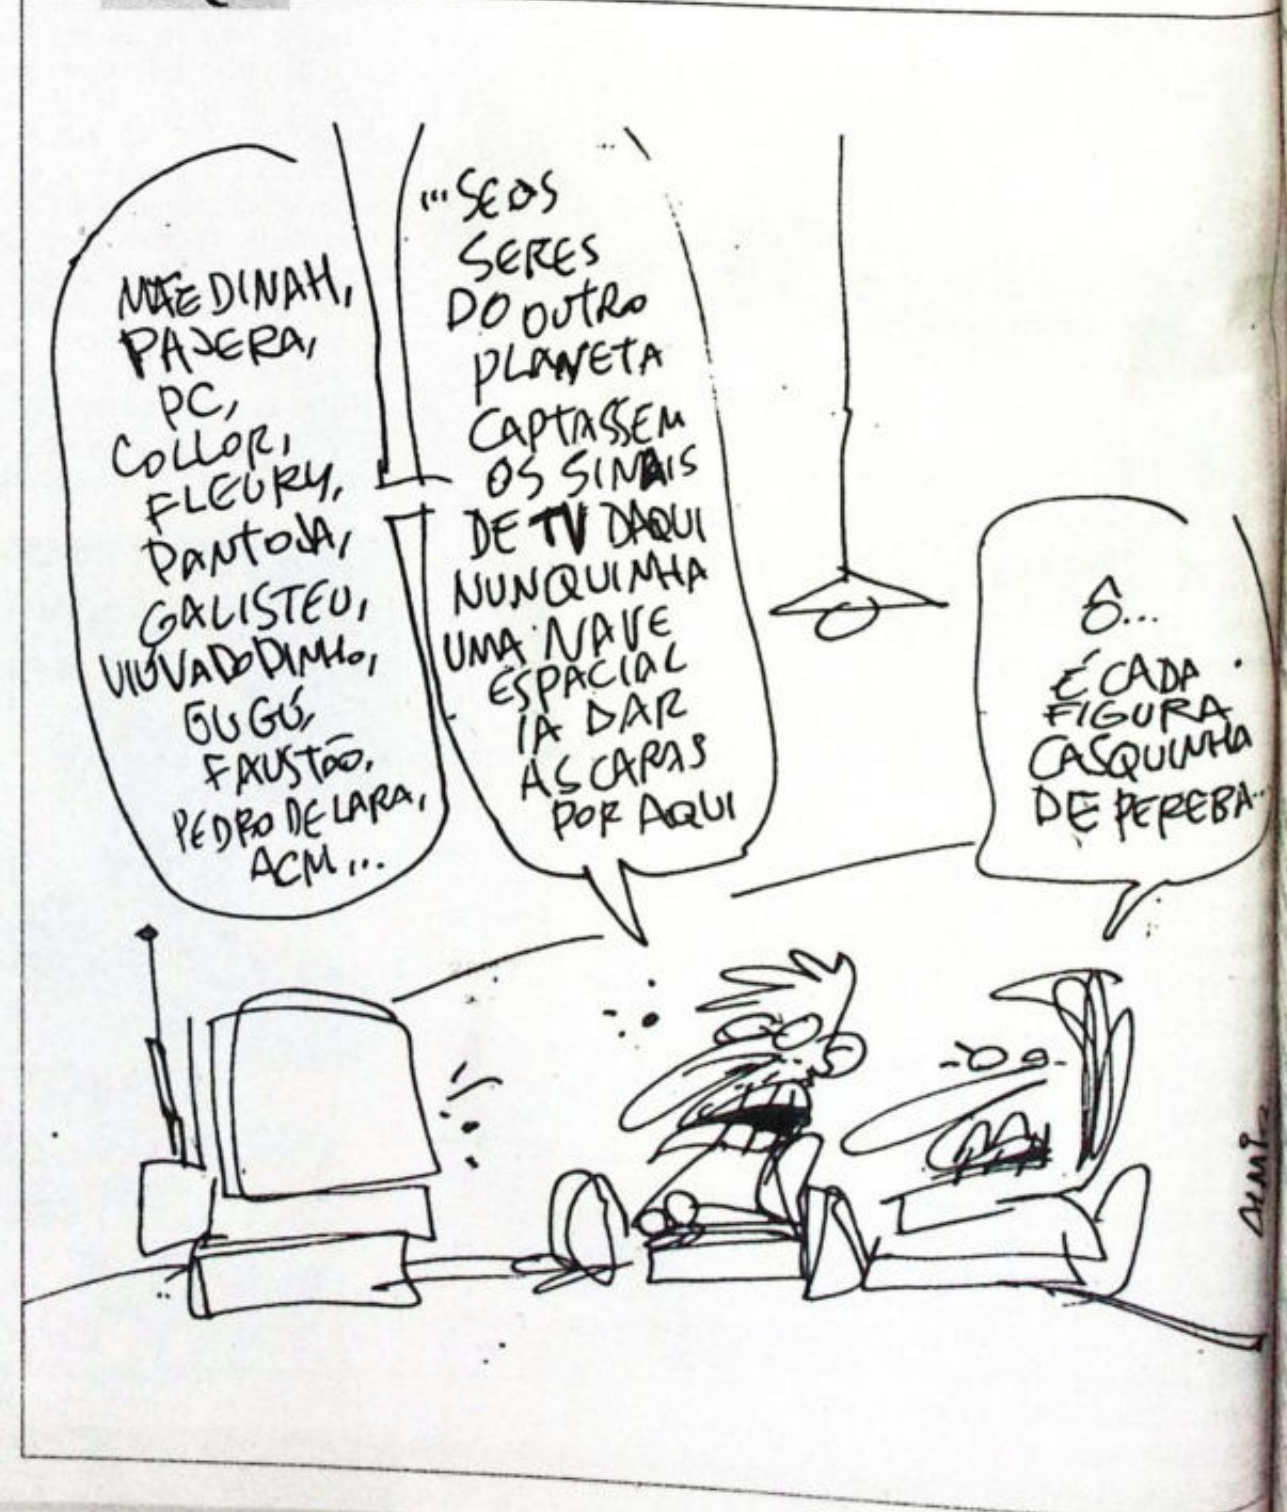 MÃE DINAH,
PAJERA,
PC,
COLLOR,
FLEURY,
PANTOJA,
GALISTEU,
VIÚVA DO DINHO,
GUGÚ,
FAUSTÃO,
PEDRO DE LARA,
ACM...
...SE OS
SERES
DO OUTRO
PLANETA
CAPTASSEM
OS SINAIS
DE TV DAQUI
NUNQUINHA
UMA NAVE
ESPACIAL
IA DAR
AS CARAS
POR AQUI
Ô...
É CADA
FIGURA
CASQUINHA
DE PEREBA..